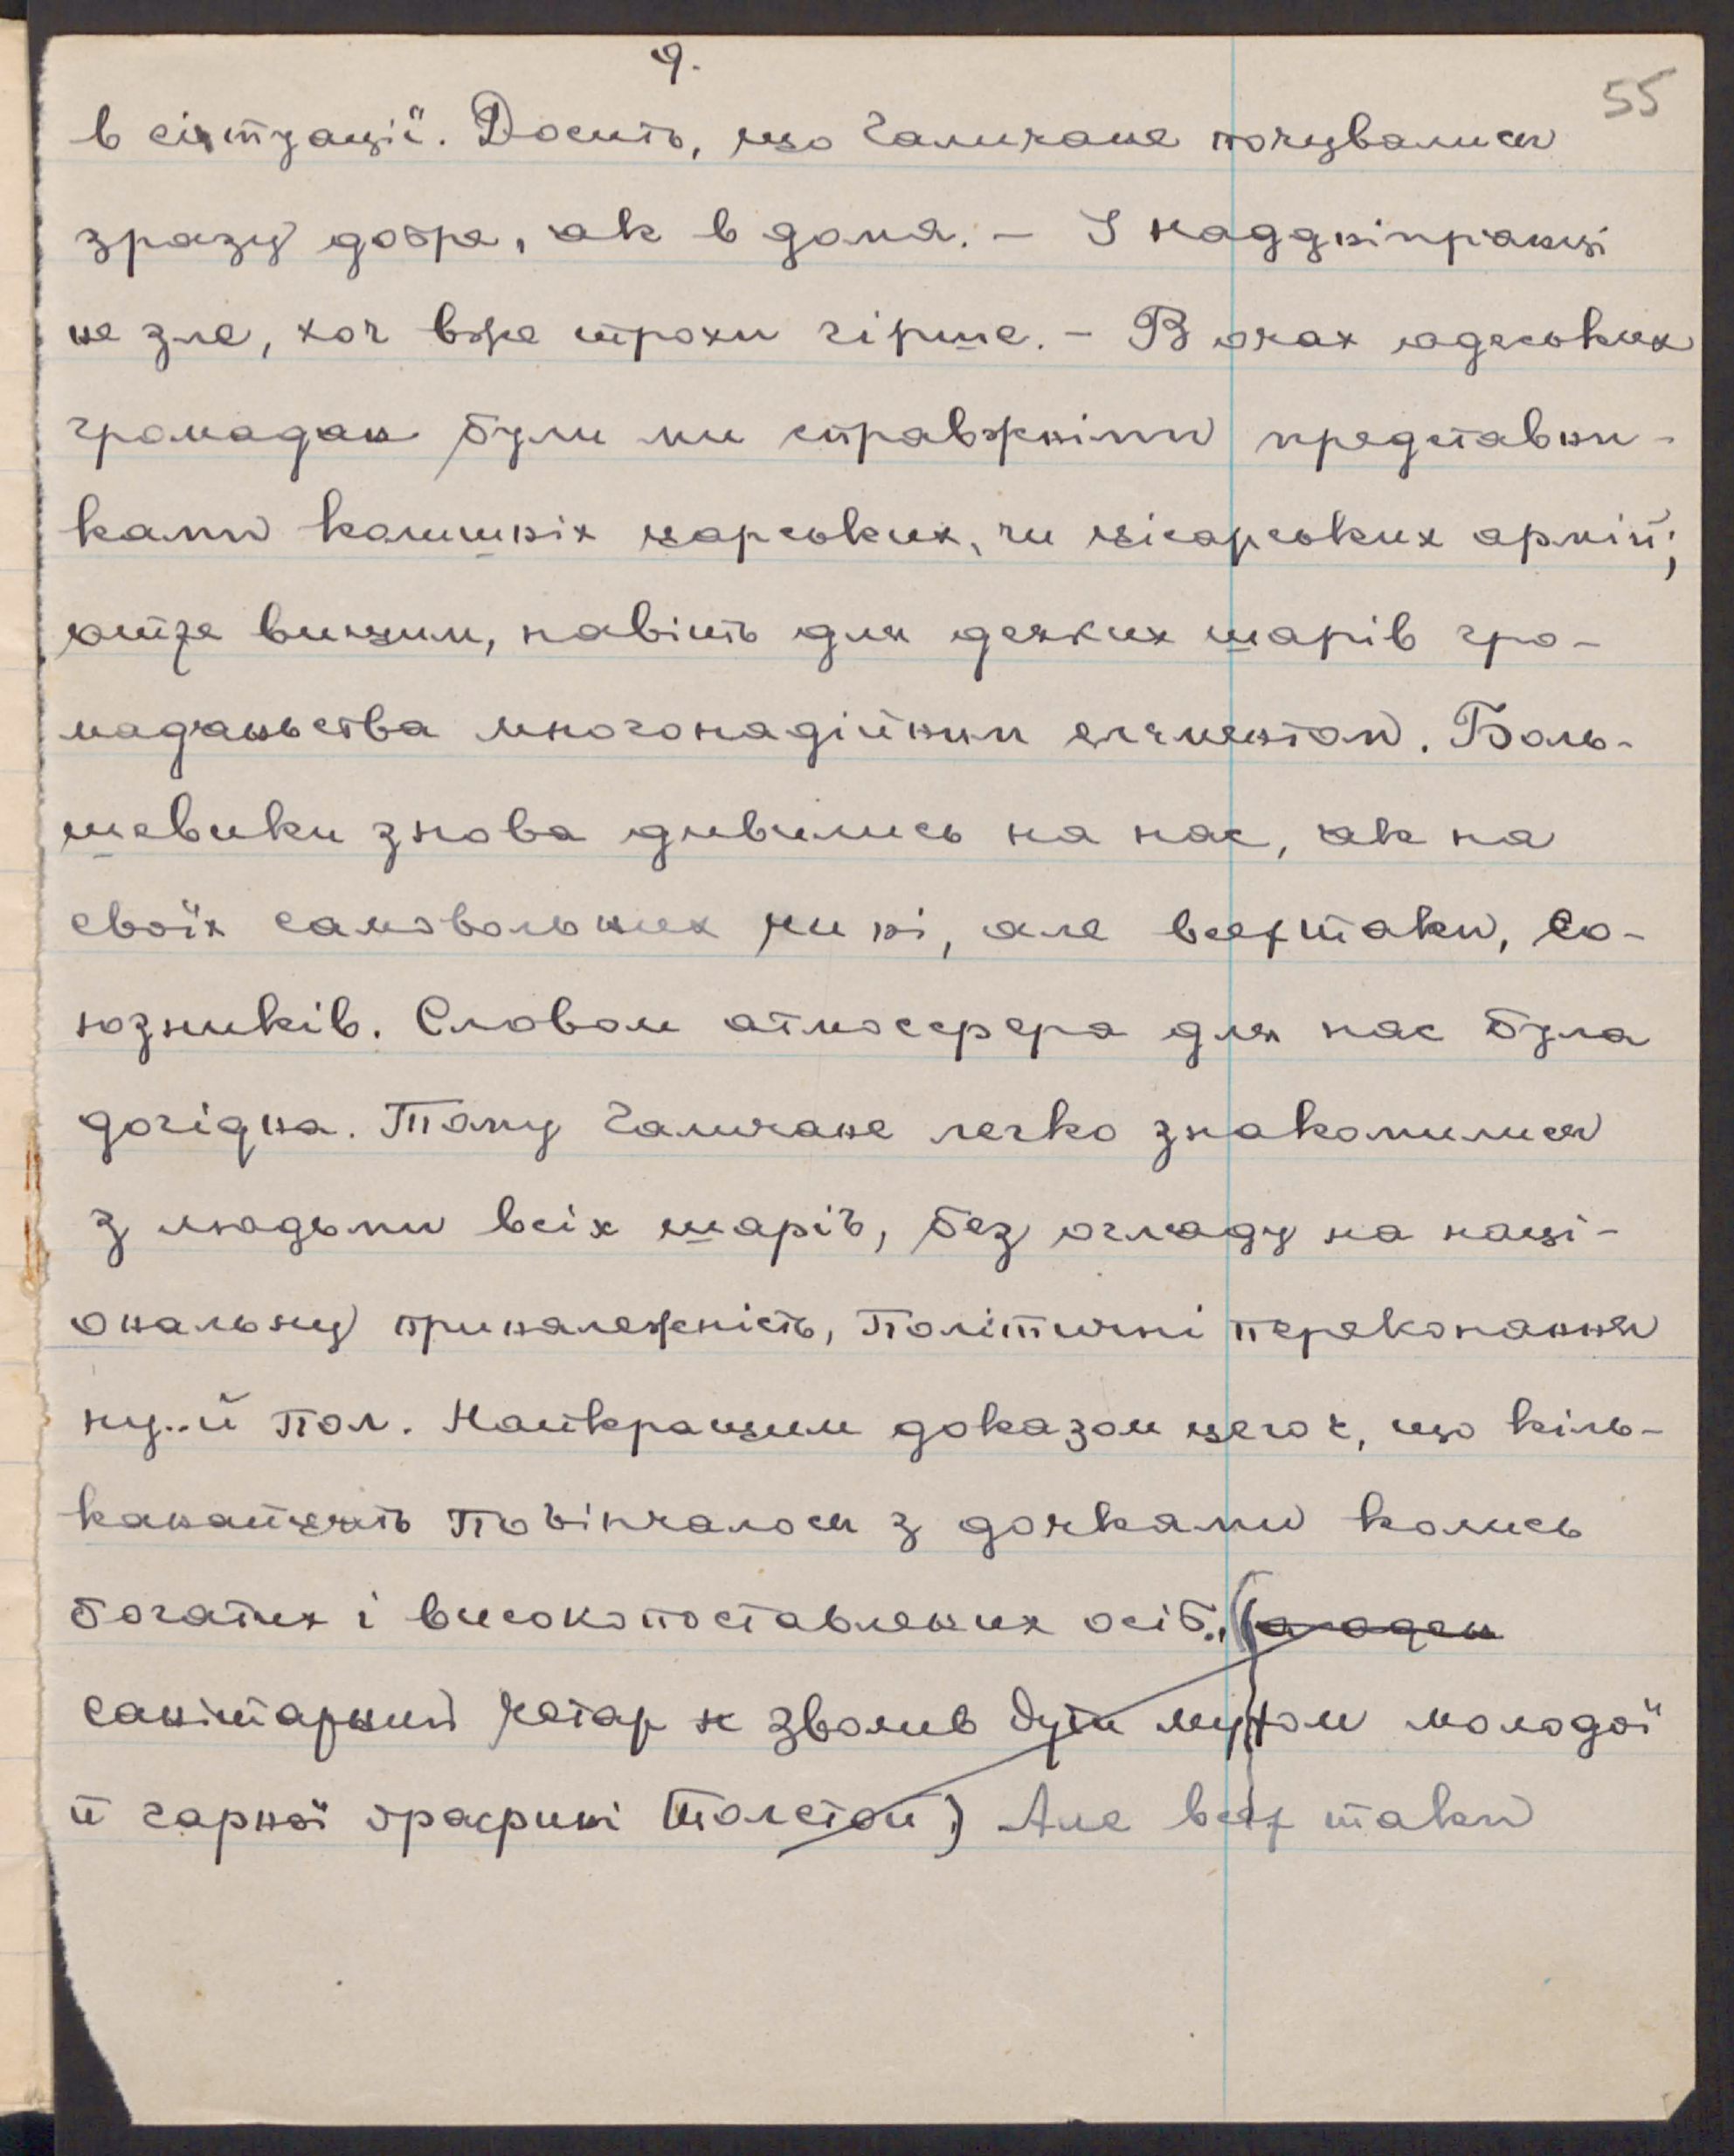 9.
55
в сітуації. Досить, що Галичане почувалися
зразу добре, як в дома. – І наддніпрянці
не зле, хоч вже трохи гірше. – В очах одеських
громадян були ми справжніми представни-
ками колишніх царських, чи цісарських армій;
отже вищим, навіть для деяких шарів гро-
мадяньства многонадійним елєментом. Боль-
шевики знова дивились на нас, як на
своїх самовольних чи ні, але всеж таки, со-
юзників. Словом атмосфера для нас була
догідна. Тому Галичане легко знакомилися
з людьми всіх шарів, без огляду на наці-
ональну приналежність, політичні переконання
ну..й пол. Найкращим доказом цего є, що кіль-
канайцять повінчалося з дочками колись
богатих і високопоставлених осіб., (а оден
санітарний четар зволив бути мужом молодої
й гарної ґрафині Толстой) Але всеж таки